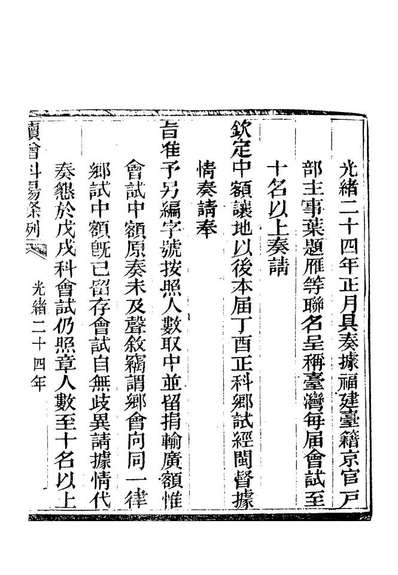 光緒二十四年正月具奏據福建臺籍京官戶
部主事葉題雁等聯名呈稱臺灣每屆會試至
十名以上奏請
欽定中額讓地以後本屆丁酉正科鄉試經閩督據
情奏請奉
旨准予另編字號按照人數取中並留捐輸廣額惟
會試中額原奏未及聲敘竊謂鄉會向同一律
鄉試中額旣已留存會試自無歧異請據情代
奏懇於戊戌科會試仍照章人數至十名以上
續增科場條例
光緒二十四年